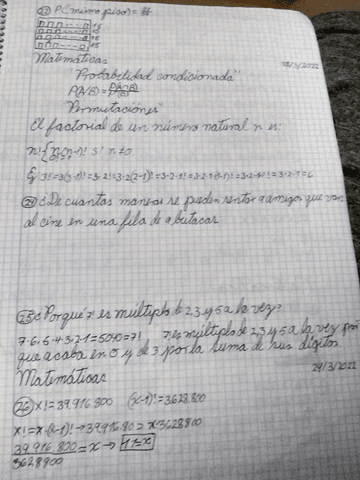 P(mismo piso)=
15
15
15
15
Matemáticas
28/3/2022
"Probabilidad condicionada"
P(A/B)=P(A∩B)/P(B)
"Permutaciones"
El factorial de un número natural n es:
n! n(n-1)! si n≠0
Ej: 3!=3(3-1)!=3·2!=3·2(2-1)!=3·2·1!=3·2·1·(1-1)!=3·2·1·0!=3·2·1=6
24 ¿De cuantas maneras se pueden sentar 4 amigos que van
al cine en una fila de 4 butacas
25 ¿Por qué 7! es múltiplo de 2,3 y 5 a la vez?
7·6·5·4·3·2·1=5040=7! 7! es múltiplo de 2,3 y 5 a la vez por
que acaba en 0 y de 3 por la suma de sus dígitos
Matemáticas
29/3/2022
26 x!=39.916.800 (x-1)!=3.628.800
x!=x·(x-1)!→39.916.80=x·3628800
39 916 800/3628800=x→11=x